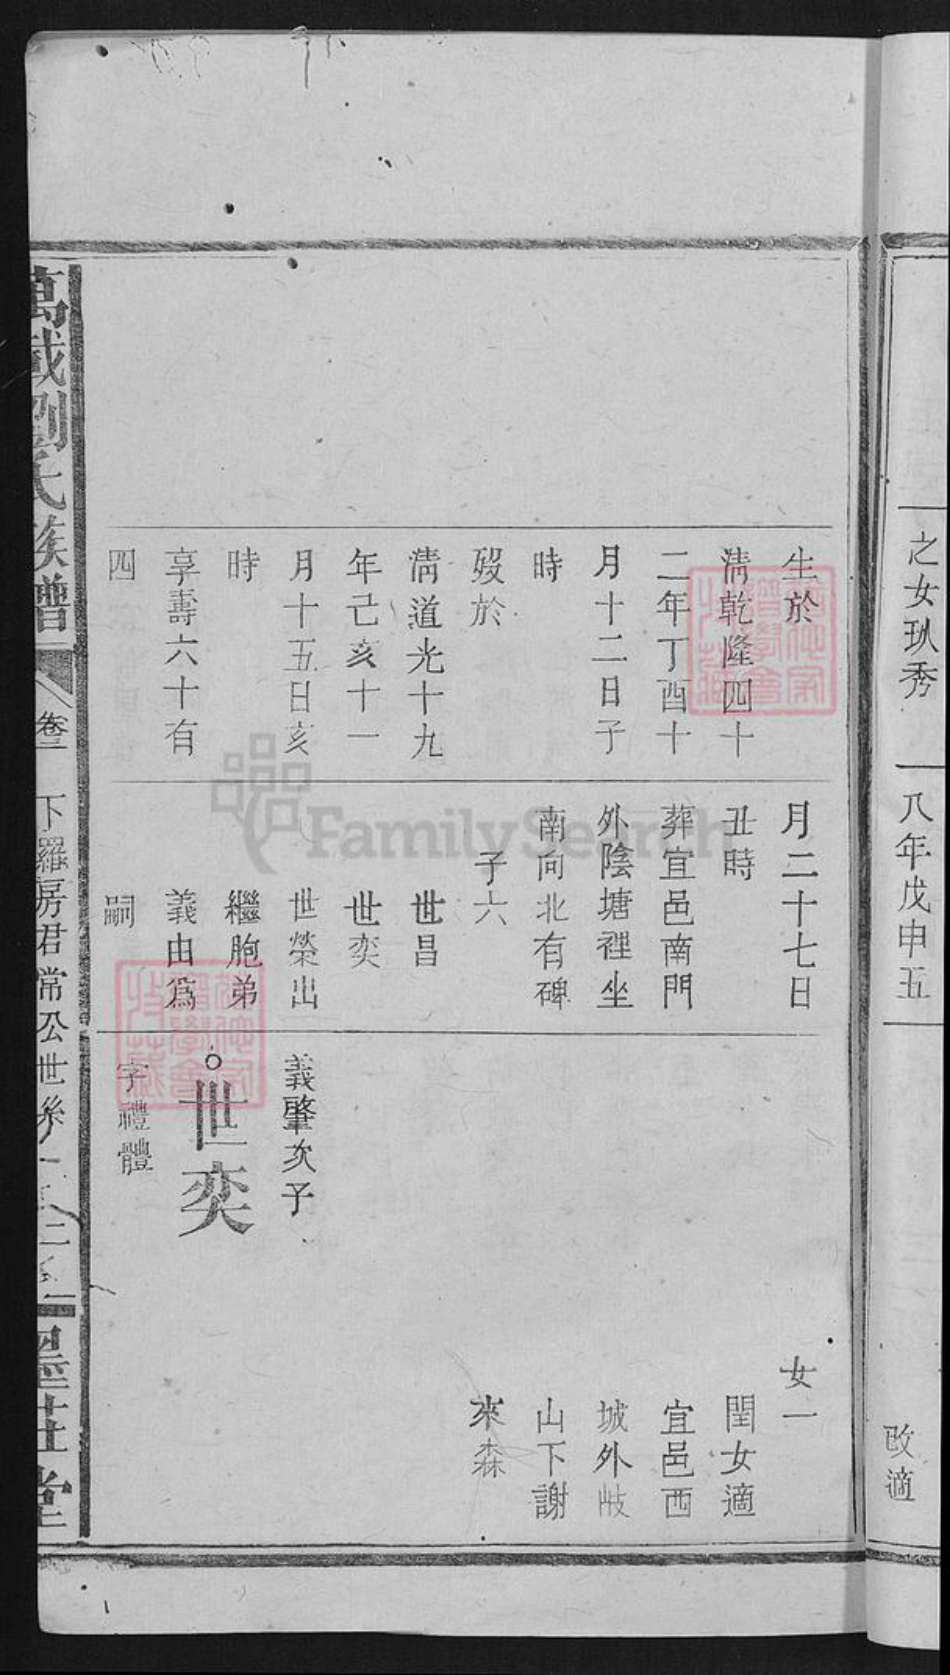 之女㺭秀
八年戊申五
改適
生於
清乾隆四十
二年丁酉十
月十二日子
時
歿於
清道光十九
年己亥十一
月十五日亥
時
享壽六十有
四
月二十七日
丑時
葬宜邑南門
外陰塘裡坐
南向北有碑
子六
世昌
世奕
世榮出
繼胞弟
義由為
嗣
女一
閏女適
宜邑西
城外歧
山下謝
來森
義肇次子
世奕
字禮體
萬載劉氏族譜
卷三
下羅房君常公世系
墨莊堂
FamilySearch